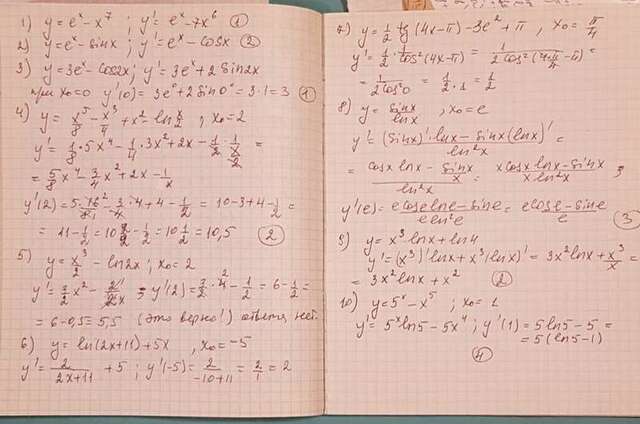 1) y = eˣ - x⁷ ; y' = eˣ - 7x⁶ (1)
2) y = eˣ - sinx ; y' = eˣ - cosx (2)
3) y = 3eˣ - cos2x ; y' = 3eˣ + 2sin2x
при x₀=0 y'(0) = 3e⁰ + 2sin0° = 3·1 = 3 (1)
4) y = x⁵/8 - x³/4 + x² - ln x/2 , x₀ = 2
y' = 1/8·5x⁴ - 1/4·3x² + 2x - 1/2·1/(x/2) =
= 5/8x⁴ - 3/4x² + 2x - 1/x
y'(2) = 5·16/8 - 3/4·4 + 4 - 1/2 = 10-3+4-1/2 =
= 11 - 1/2 = 10 2/2 - 1/2 = 10 1/2 = 10,5 (2)
5) y = x³/2 - ln2x ; x₀ = 2
y' = 3/2x² - 2/2x ; y'(2) = 3/2·4 - 1/2 = 6 - 1/2 =
= 6-0,5 = 5,5 (это верно!) ответа нет
6) y = ln(2x+11) + 5x , x₀ = -5
y' = 2/(2x+11) + 5 ; y'(-5) = 2/(-10+11) = 2/1 = 2
7) y = 1/2 tg(4x-π) - 3e² + π , x₀ = π/4
y' = 1/2·1/cos²(4x-π) = 1/(2cos²(4·π/4-π)) =
= 1/(2cos²0) = 1/2·1 = 1/2
8) y = sinx/lnx , x₀ = e
y' = ((sinx)'·lnx - sinx(lnx)')/ln²x =
= (cosx lnx - sinx/x)/ln²x = (xcosx lnx - sinx)/(x ln²x) ;
y'(e) = (e cose lne - sine)/(e ln²e) = (e cose - sine)/e (3)
9) y = x³lnx + ln4
y' = (x³)'lnx + x³(lnx)' = 3x²lnx + x³/x =
= 3x²lnx + x² (2)
10) y = 5ˣ - x⁵ ; x₀ = 1
y' = 5ˣln5 - 5x⁴ ; y'(1) = 5ln5 - 5 =
= 5(ln5-1)
(4)